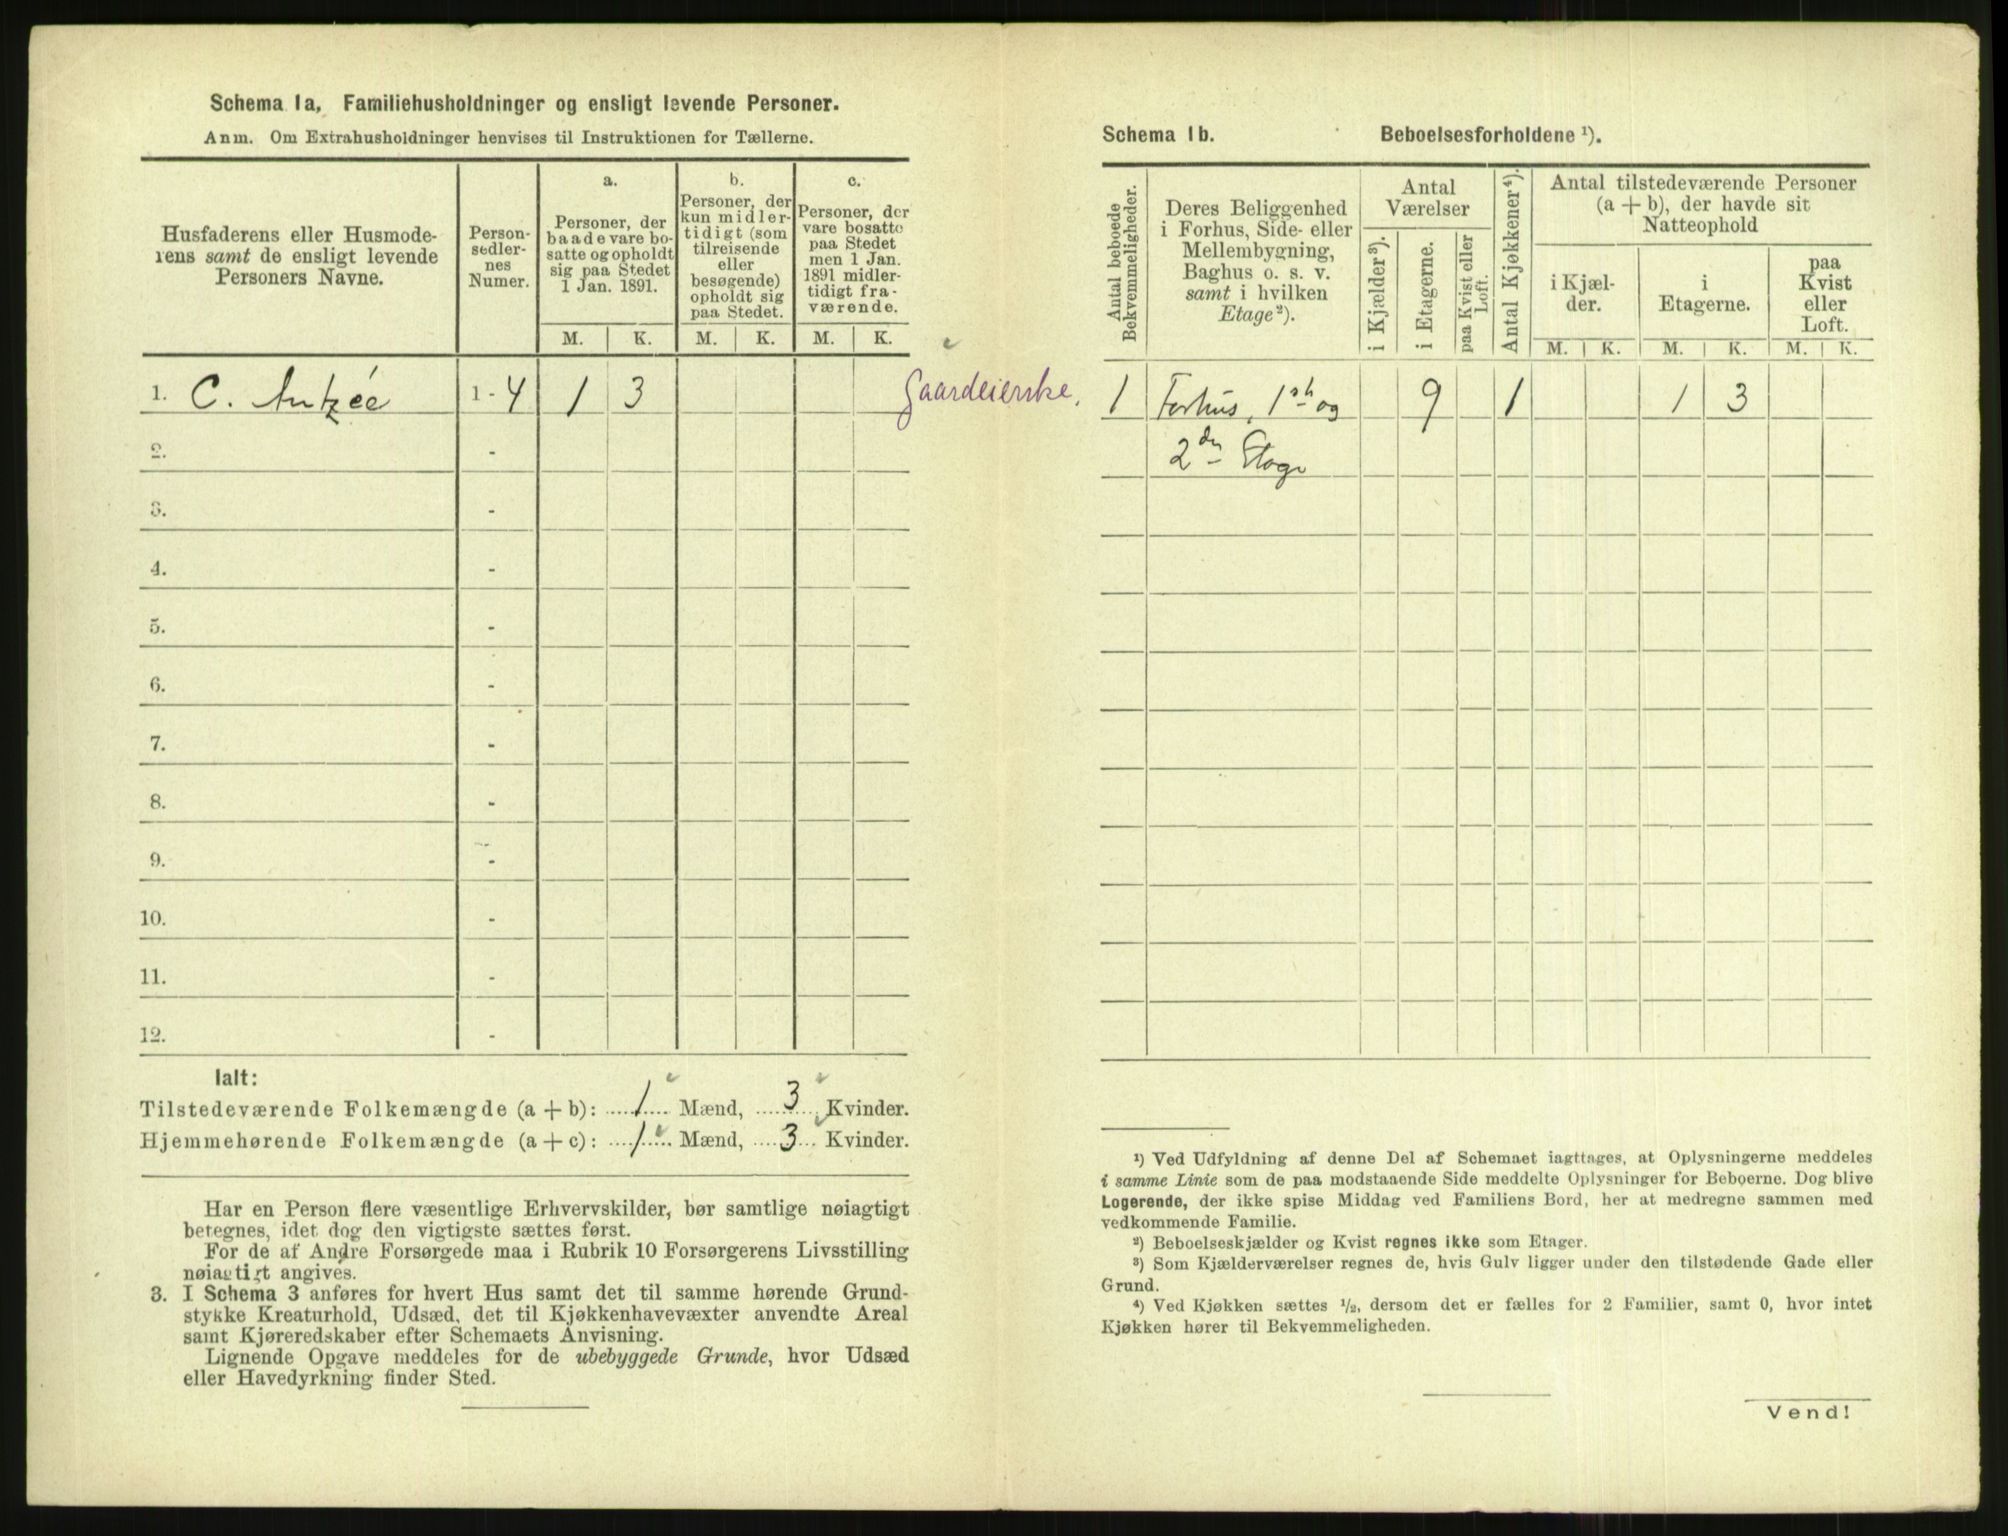 Schema 1a, Familiehusholdninger og ensligt levende Personer.
Anm. Om Extrahusholdninger henvises til Instruktionen for Tællerne.
Husfaderens eller Husmode-
rens samt de ensligt levende
Personers Navne.
Person-
sedler-
nes
Numer.
a.
Personer, der
baade vare bo-
satte og opholdt
sig paa Stedet
1 Jan. 1891.
b.
Personer, der
kun midler-
tidigt (som
tilreisende
eller
besøgende)
opholdt sig
paa Stedet.
c.
Personer, der
vare bosatte
paa Stedet
men 1 Jan.
1891 midler-
tidigt fra-
værende.
M. K. M. K. M. K.
1. C. 1 - 4 1 3 Gaardeierske.
2. -
3. -
4. -
5. -
6. -
7. -
8. -
9. -
10. -
11. -
12. -
Ialt:
Tilstedeværende Folkemængde (a + b): 1 Mænd, 3 Kvinder.
Hjemmehørende Folkemængde (a + c): 1 Mænd, 3 Kvinder.
Har en Person flere væsentlige Erhvervskilder, bør samtlige nøiagtigt
betegnes, idet dog den vigtigste sættes først.
For de af Andre Forsørgede maa i Rubrik 10 Forsørgerens Livsstilling
nøiagtigt angives.
3. I Schema 3 anføres for hvert Hus samt det til samme hørende Grund-
stykke Kreaturhold, Udsæd, det til Kjøkkenhavevæxter anvendte Areal
samt Kjøreredskaber efter Schemaets Anvisning.
Lignende Opgave meddeles for de ubebyggede Grunde, hvor Udsæd
eller Havedyrkning finder Sted.
Schema 1b. Beboelsesforholdene ¹).
Antal beboede
Bekvemmeligheder.
Deres Beliggenhed
i Forhus, Side- eller
Mellembygning,
Baghus o. s. v.
samt i hvilken
Etage²).
Antal
Værelser
i Kjælder³).
i Etagerne.
paa Kvist eller
Loft.
Antal Kjøkkener⁴).
Antal tilstedeværende Personer
(a + b), der havde sit
Natteophold
i Kjæl-
der.
i
Etagerne.
paa
Kvist
eller
Loft.
M. K. M. K. M. K.
1 Forhus, 1ste og 9 1 1 3
2den Etage
¹) Ved Udfyldning af denne Del af Schemaet iagttages, at Oplysningerne meddeles
i samme Linie som de paa modstaaende Side meddelte Oplysninger for Beboerne. Dog blive
Logerende, der ikke spise Middag ved Familiens Bord, her at medregne sammen med
vedkommende Familie.
²) Beboelseskjælder og Kvist regnes ikke som Etager.
³) Som Kjælderværelser regnes de, hvis Gulv ligger under den tilstødende Gade eller
Grund.
⁴) Ved Kjøkken sættes ½, dersom det er fælles for 2 Familier, samt 0, hvor intet
Kjøkken hører til Bekvemmeligheden.
Vend!